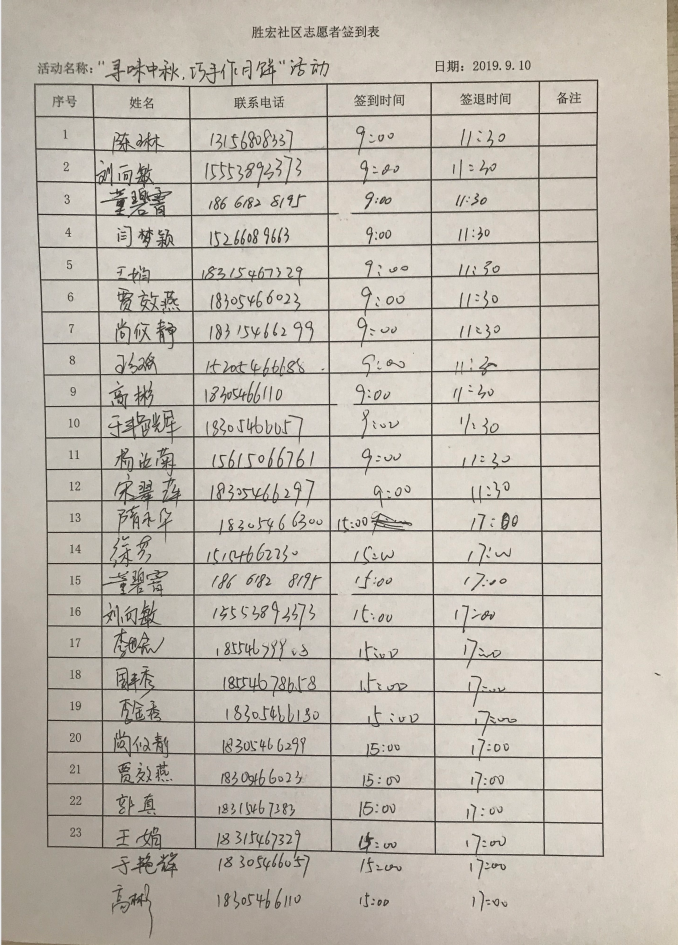 胜宏社区志愿者签到表
活动名称："寻味中秋,巧手作月饼"活动 日期：2019.9.10
序号 姓名 联系电话 签到时间 签退时间 备注
1 陈琳 13156808337 9:00 11:30
2 刘向敏 15553893373 9:00 11:30
3 董碧霄 186 6182 8195 9:00 11:30
4 闫梦颖 15266089663 9:00 11:30
5 王娟 18315467329 9:00 11:30
6 贾效燕 18305466023 9:00 11:30
7 尚攸静 18315466299 9:00 11:30
8 15205466688 9:00 11:30
9 高彬 18305466110 9:00 11:30
10 于艳辉 18305466057 9:00 11:30
11 杨汝菊 15615066761 9:00 11:30
12 宋翠莲 18305466297 9:00 11:30
13 隋永华 18305466300 15:00 17:00
14 徐芳 15154662230 15:00 17:00
15 董碧霄 186 6182 8195 15:00 17:00
16 刘向敏 15553893373 15:00 17:00
17 15:00 17:00
18 18554678658 15:00 17:00
19 李金秀 18305466130 15:00 17:00
20 尚攸静 18305466299 15:00 17:00
21 贾效燕 18305466023 15:00 17:00
22 郭真 18315467383 15:00 17:00
23 王娟 18315467329 15:00 17:00
于艳辉 18305466057 15:00 17:00
高彬 18305466110 15:00 17:00